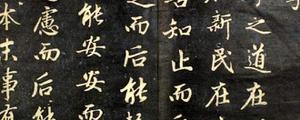 之道在
新民在
善知止而
而后能
能安安而
慮而后能
本末事有